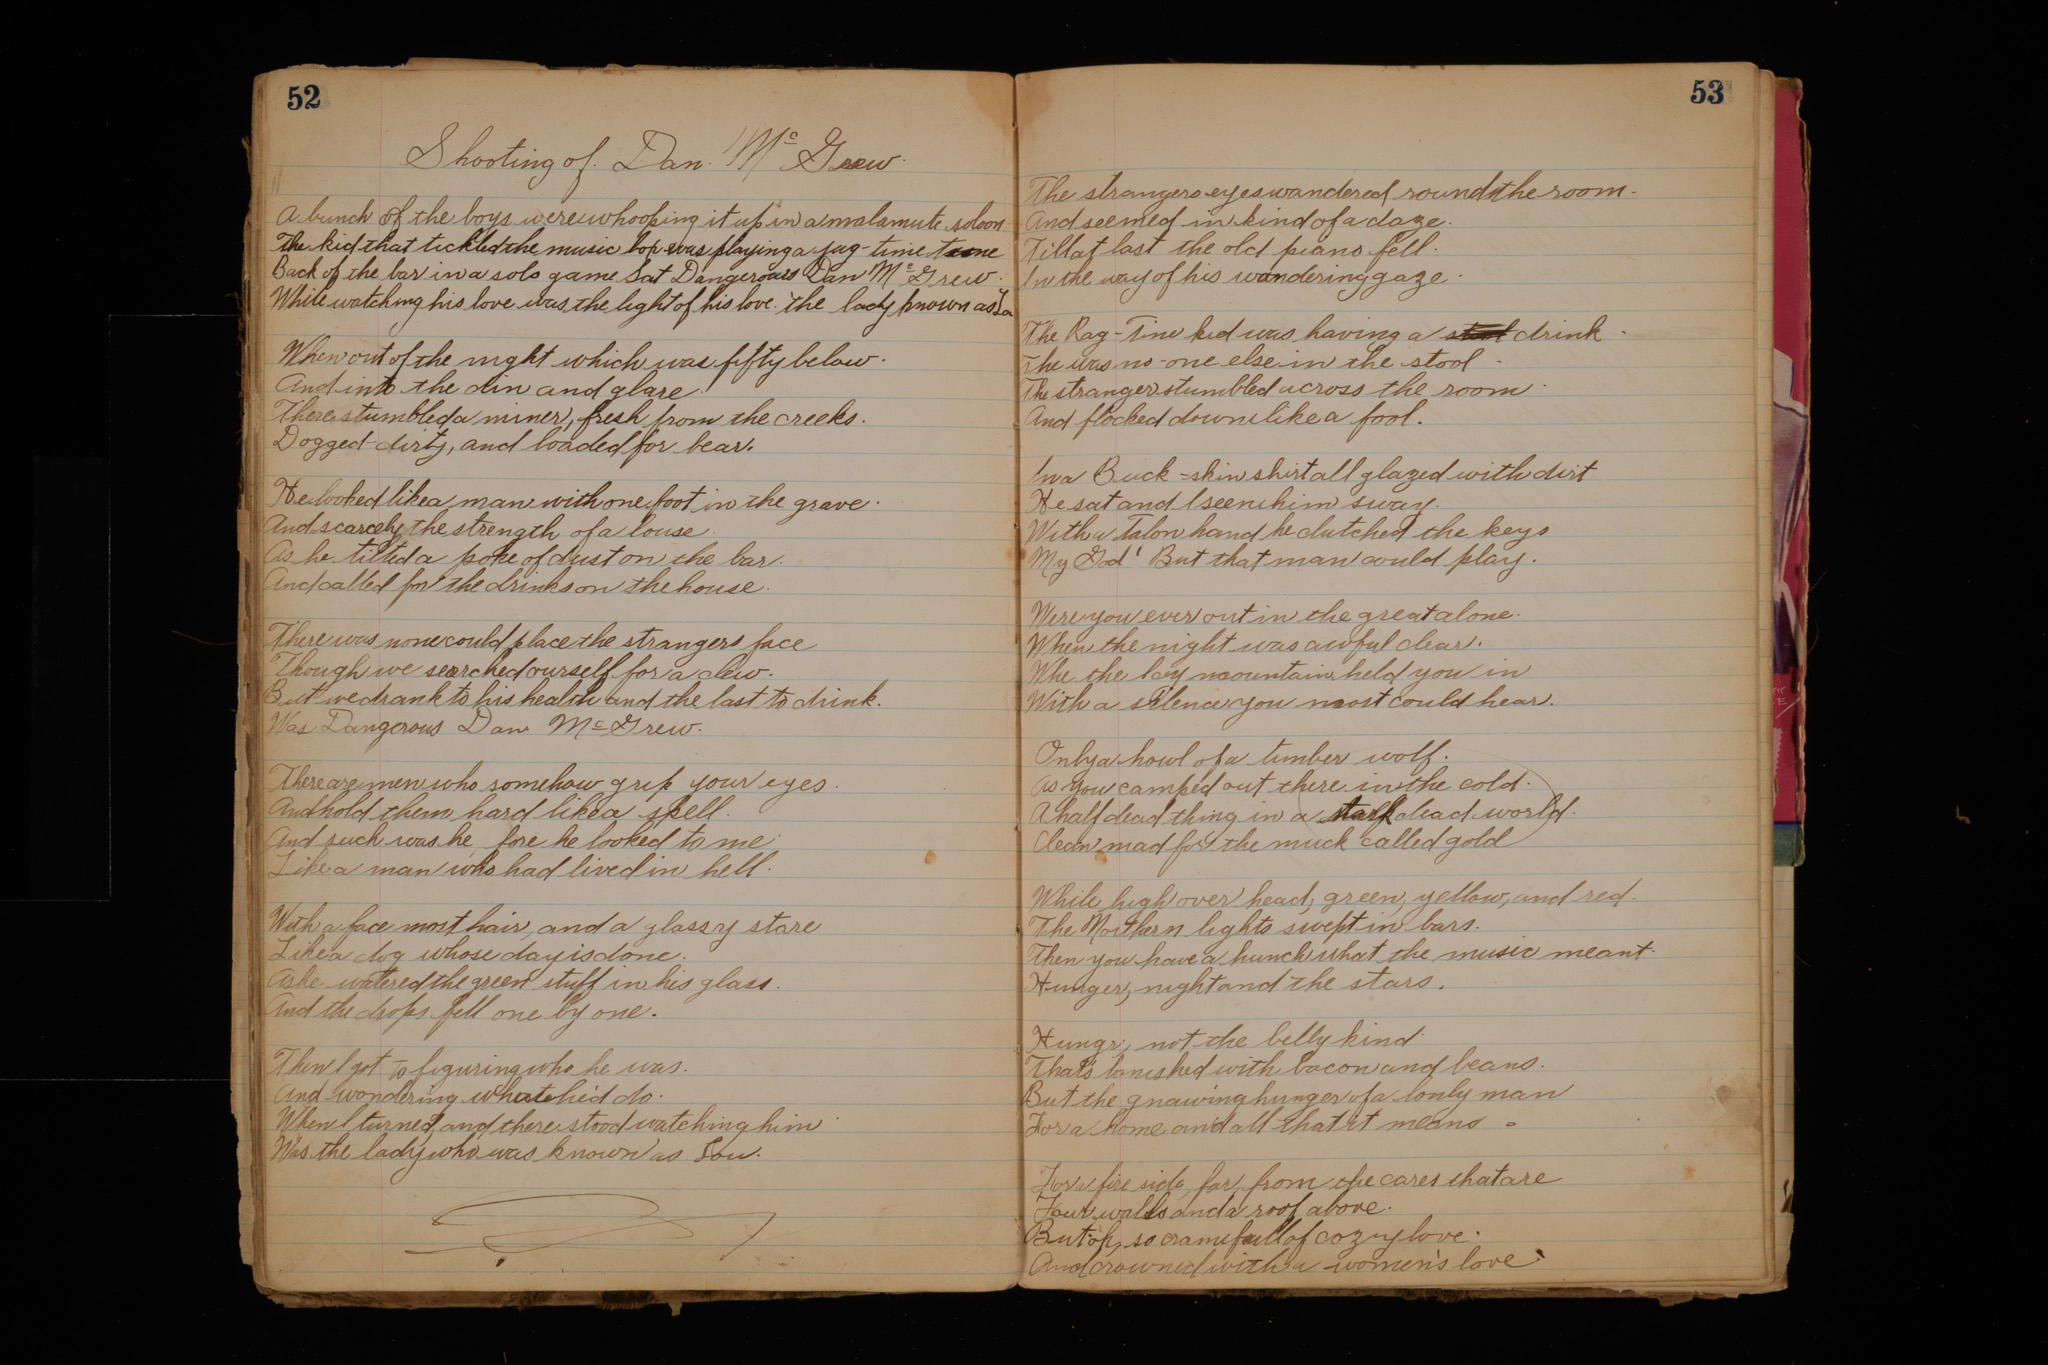 52
Shooting of. Dan. Mc Grew.
A bunch of the boys were whooping it up in a malamute soloon
The kid that tickled the music box was playing a jag-time tune
Back of the bar in a solo game Sat Dangerous Dan Mc Grew.
While watching his love was the light of his love. the lady known as Lou
When out of the night which was fifty below.
And into the din and glare
There stumbled a miner, fresh from the creeks.
Dogged dirty, and loaded for bear.
He looked like a man with one foot in the grave.
And scarcely the strength of a louse
As he tilted a poke of dust on the bar.
And called for the drinks on the house.
There was none could place the strangers face
Though we searched ourself for a clew.
But we drank to his health and the last to drink.
Was Dangerous Dan Mc Grew.
There are men who somehow grip your eyes.
And hold them hard like a spell.
And such was he, fore he looked to me
Like a man who had lived in hell.
With a face most hair, and a glassy stare
Like a dog whose day is done.
As he watered the green stuff in his glass.
And the drops fell one by one.
Then I got to figuring who he was.
And wondering what he'd do.
When I turned, and there stood watching him
Was the lady who was known as Lou.
53
The strangers eyes wandered round the room.
And seemed in kind of a daze.
Till at last the old piano fell.
In the way of his wandering gaze.
The Rag-Time kid was having a drink.
The was no-one else in the stool
The stranger stumbled across the room.
And flocked down like a fool.
In a Buck-skin shirt all glazed with dirt
He sat and I seen him sway.
With a Talon hand he clutched the keys
My God! But that man could play.
Were you ever out in the great alone.
When the night was awful clear.
Whe the Icy mountain held you in
With a silence you most could hear.
Only a howl of a timber wolf.
As you camped out there in the cold.
A half dead thing in a stark dead world.
Clean mad for the muck called gold
While high over head, green, yellow, and red.
The Northern lights swept in bars.
Then you have a hunch what the music meant.
Hunger, night and the stars.
Hungr, not the belly kind
That's banished with bacon and beans.
But the gnawing hunger of a lonly man
For a home and all that it means.
For a fire side, far from the cares that are
Four walls and a roof above.
But oh, so cram full of cozy love.
And crowned with a women's love.